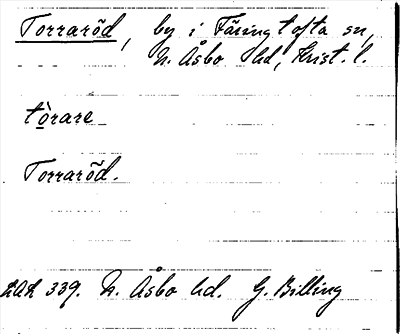 Torraröd, by i Färingtofta sn,
N. Åsbo hd, Krist. l.
tòrare
Torraröd.
LAL 339. N. Åsbo hd. G. Billing